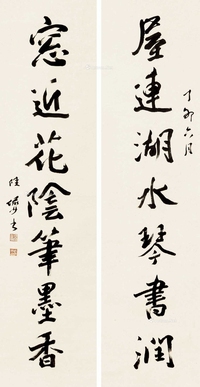 屋連湖水琴書潤
丁卯六月
窓近花陰筆墨香